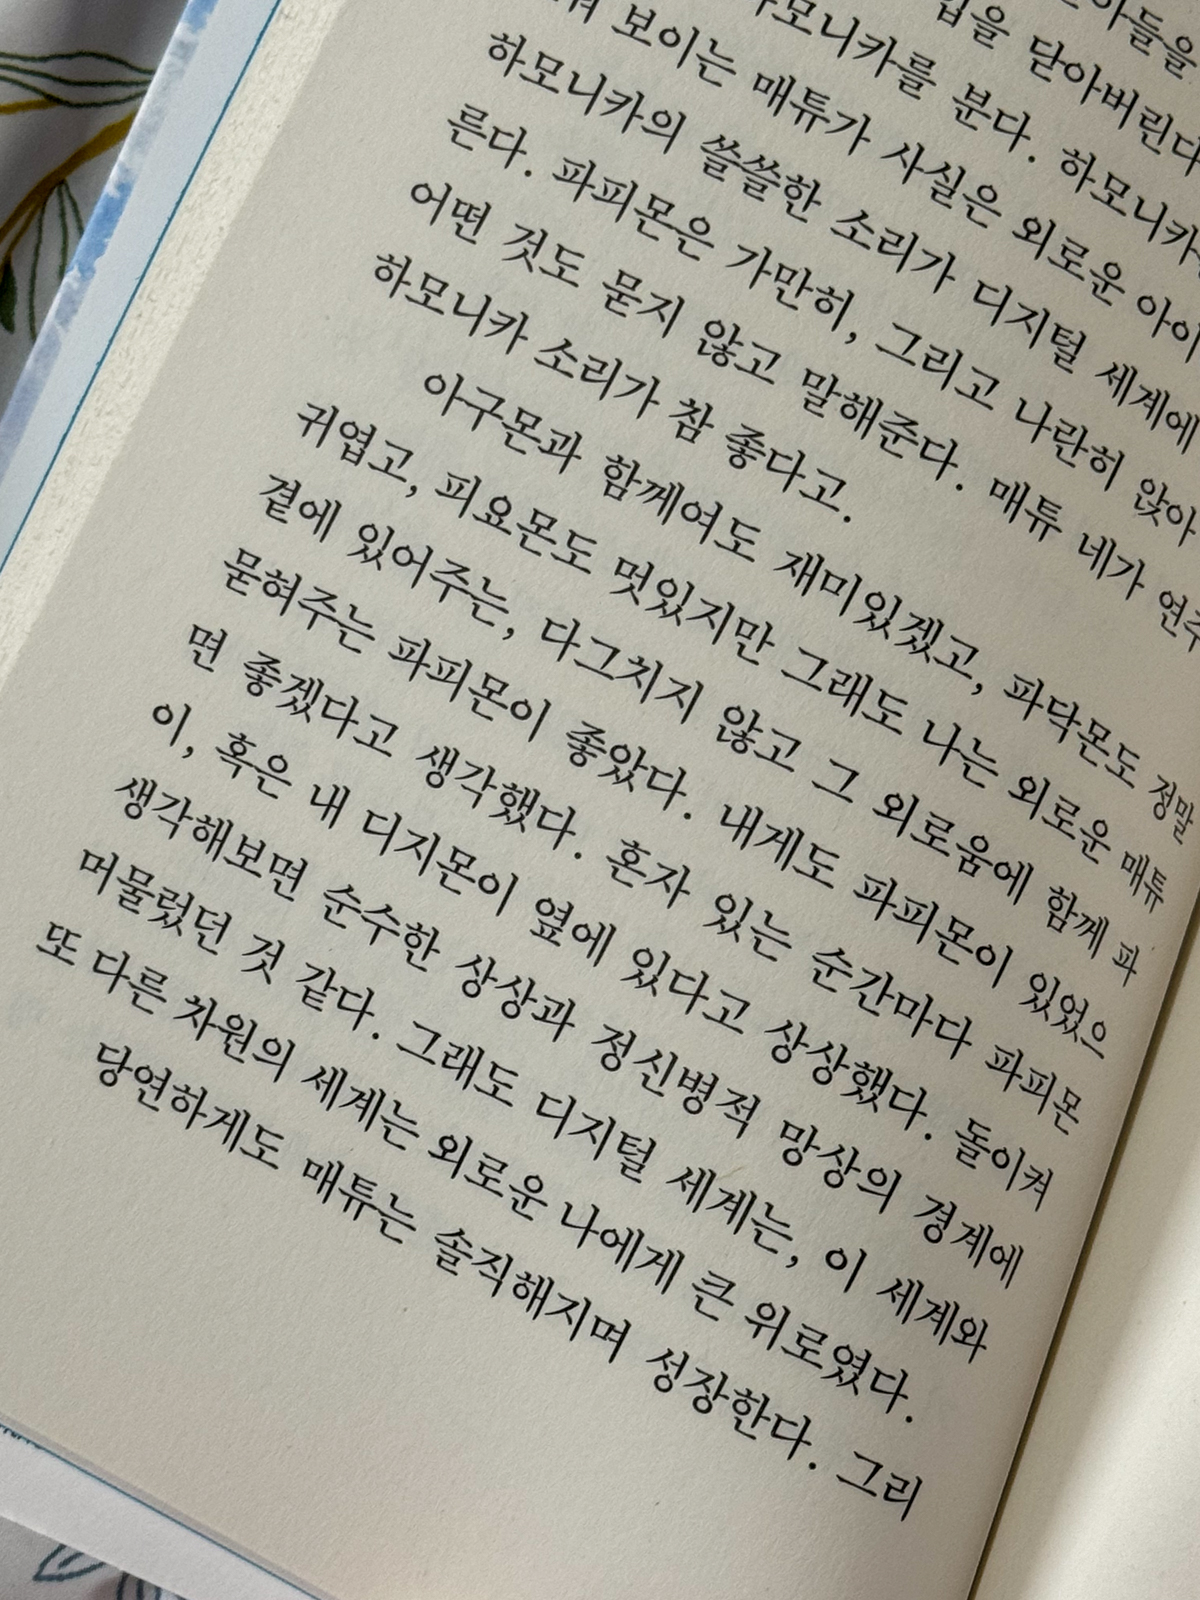 아들을
닫아버린다
하모니카를 분다. 하모니카
보이는 매튜가 사실은 외로운 아이
하모니카의 쓸쓸한 소리가 디지털 세계에
른다. 파피몬은 가만히, 그리고 나란히 앉아
어떤 것도 묻지 않고 말해준다. 매튜 네가 연주
하모니카 소리가 참 좋다고.
아구몬과 함께여도 재미있겠고, 파닥몬도 정말
귀엽고, 피요몬도 멋있지만 그래도 나는 외로운 매튜
곁에 있어주는, 다그치지 않고 그 외로움에 함께 파
묻혀주는 파피몬이 좋았다. 내게도 파피몬이 있었으
면 좋겠다고 생각했다. 혼자 있는 순간마다 파피몬
이, 혹은 내 디지몬이 옆에 있다고 상상했다. 돌이켜
생각해보면 순수한 상상과 정신병적 망상의 경계에
머물렀던 것 같다. 그래도 디지털 세계는, 이 세계와
또 다른 차원의 세계는 외로운 나에게 큰 위로였다.
당연하게도 매튜는 솔직해지며 성장한다. 그리